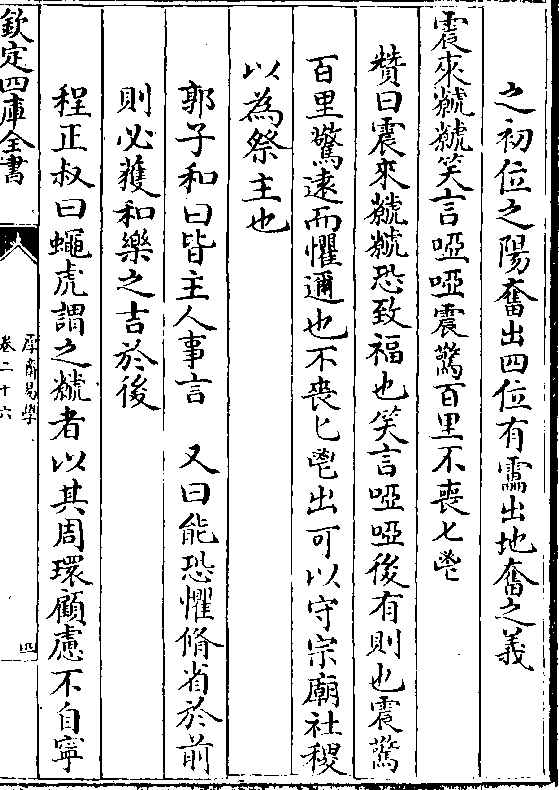 之初位之陽奮出四位有靁出地奮之義
震來虩虩笑言啞啞震驚百里不喪匕鬯
贊曰震來虩虩恐致福也笑言啞啞後有則也震驚
百里驚逺而懼邇也不喪匕鬯出可以守宗廟社稷
以為祭主也
郭子和曰皆主人事言　又曰能恐懼脩省於前
則必獲和樂之吉於後
程正叔曰蠅虎謂之虩者以其周環顧慮不自寧
欽定四庫全書
厚齋易學
卷二十六
四